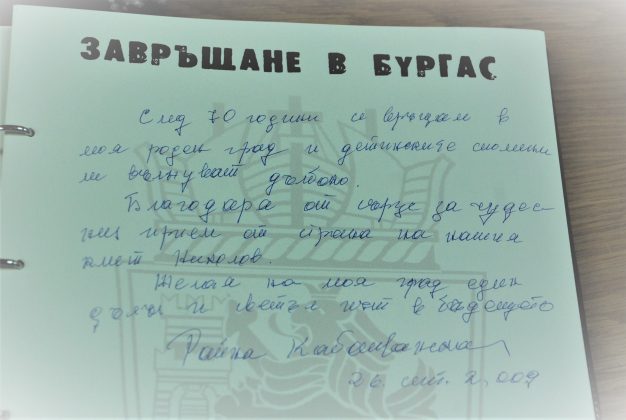 ЗАВРЪЩАНЕ В БУРГАС
След 70 години се връщам в
моя роден град и детинските спомени
ме вълнуват дълбоко.
Благодаря от сърце за чудес-
ния прием от страна на нашия
кмет Николов.
Желая на моя град един
дълъг и светъл път в бъдещето
Райна Кабаиванска
26 септ. 2,009